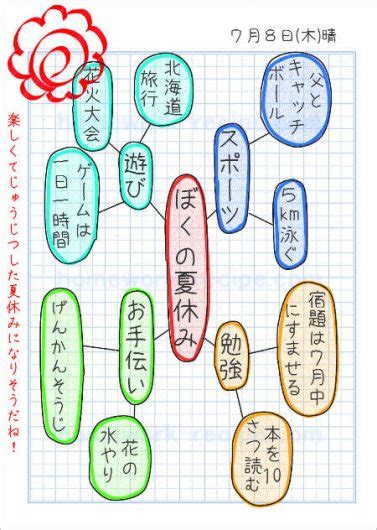 7月8日(木)晴
父と
キャッチ
ボール
北海道
旅行
花火大会
スポーツ
遊び
ゲームは
一日一時間
5km泳ぐ
ぼくの夏休み
宿題は7月中
にすませる
勉強
本を10
さつ読む
お手伝い
げんかんそうじ
花の
水やり
楽しくてじゅうじつした夏休みになりそうだね!